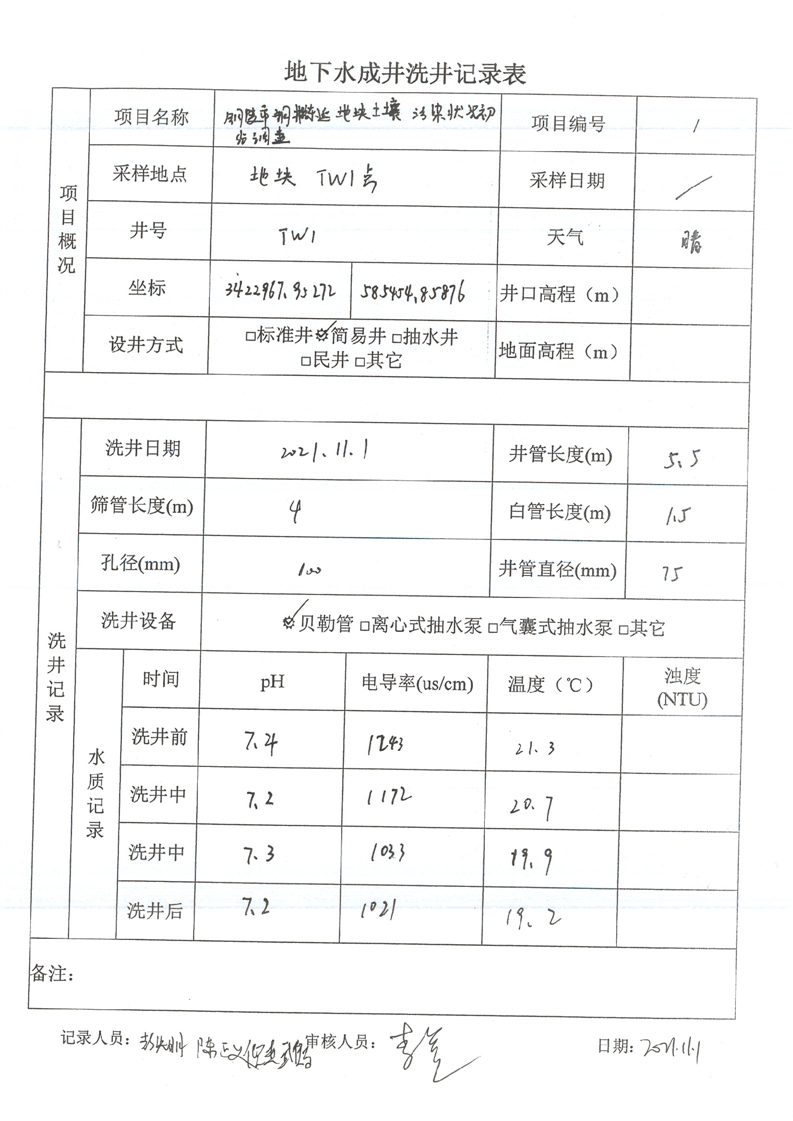 地下水成井洗井记录表
项目概况
项目名称 地块土壤污染状况初 项目编号 /
步调查
采样地点 地块 TW1点 采样日期 /
井号 TW1 天气 晴
坐标 3422967.95272 585454.85876 井口高程（m）
设井方式 □标准井 ☑简易井 □抽水井 地面高程（m）
□民井 □其它
洗井记录
洗井日期 2021.11.1 井管长度(m) 5.5
筛管长度(m) 4 白管长度(m) 1.5
孔径(mm) 100 井管直径(mm) 75
洗井设备 ☑贝勒管 □离心式抽水泵 □气囊式抽水泵 □其它
水质记录
时间 pH 电导率(us/cm) 温度（℃） 浊度
(NTU)
洗井前 7.4 1243 21.3
洗井中 7.2 1172 20.7
洗井中 7.3 1033 19.9
洗井后 7.2 1021 19.2
备注：
记录人员： 审核人员： 日期：2021.11.1